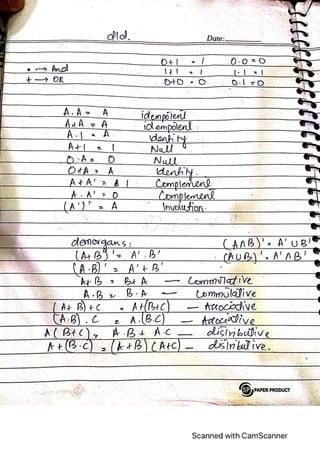 dld.
Date:
0+1 = 1    0.0=0
. → And    1+1 = 1    1.1=1
+ → OR    0+0 = 0    0.1=0
A.A = A    idempotent
A+A = A    idempotent
A.1 = A    identity
A+1 = 1    Null
0.A = 0    Null
0+A = A    Identity.
A+A' = 1    Complement
A.A' = 0    Complement
(A')' = A    Involution.
demorgans:    (A∩B)' = A'∪B'
(A+B)' = A'.B'    (A∪B)' = A'∩B'
(A.B)' = A'+B'
A+B = B+A — Commutative
A.B = B.A — Commutative
(A+B)+C = A+(B+C) — Associative
(A.B).C = A.(B.C) — Associative
A(B+C) = A.B + A.C — distributive
A+(B.C) = (A+B)(A+C) — distributive.
PAPER PRODUCT
Scanned with CamScanner